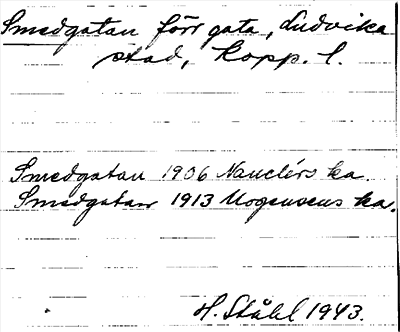 Smedgatan förr gata, Ludvika
stad, Kopp. l.
Smedgatan 1906 Nauclérs ka.
Smedgatan 1913 Mogensens ka.
H. Ståhl 1943.